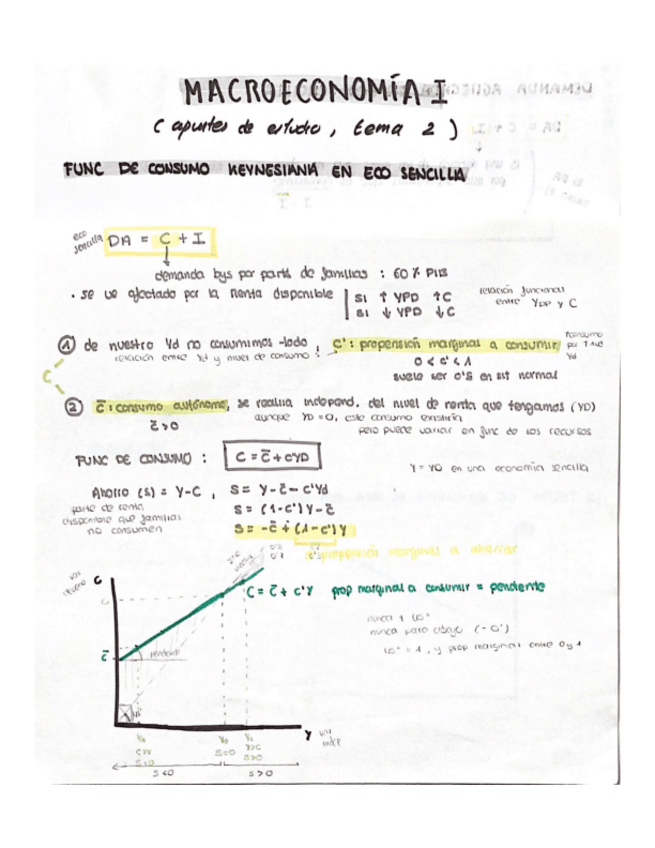 MACROECONOMÍA I
(apuntes de estudio, tema 2)
FUNC DE CONSUMO KEYNESIANA EN ECO SENCILLA
eco sencilla DA = C + I
demanda bys por parte de familias : 60% PIB
· se ve afectado por la renta disponible
si ↑ YPD ↑C
si ↓ YPD ↓C
relación funcional
entre YDP y C
① de nuestro Yd no consumimos todo, C': propensión marginal a consumir
relación entre Yd y nivel de consumo
0 < c' < 1
suele ser 0'8 en sit normal
C
② C̄: consumo autónomo, se realiza independ. del nivel de renta que tengamos (YD)
c̄>0
aunque YD=0, este consumo existiría
pero puede variar en func de los recursos
FUNC DE CONSUMO : C = C̄ + c'YD
Y = YD en una economía sencilla
Ahorro (S) = Y-C , S = Y - C̄ - C'Yd
parte de renta
disponible que familias
no consumen
S = (1-c')Y - C̄
S = -C̄ + (1-c')Y
propensión marginal a ahorrar
C
C = C̄ + c'Y prop marginal a consumir = pendiente
nunca paro abajo (-0')
45° = 1, y prop marginal entre 0 y 1
C̄
pendiente
45°
Y
C>Y
S<0
S=0
Y>C
S>0
S<0
S>0